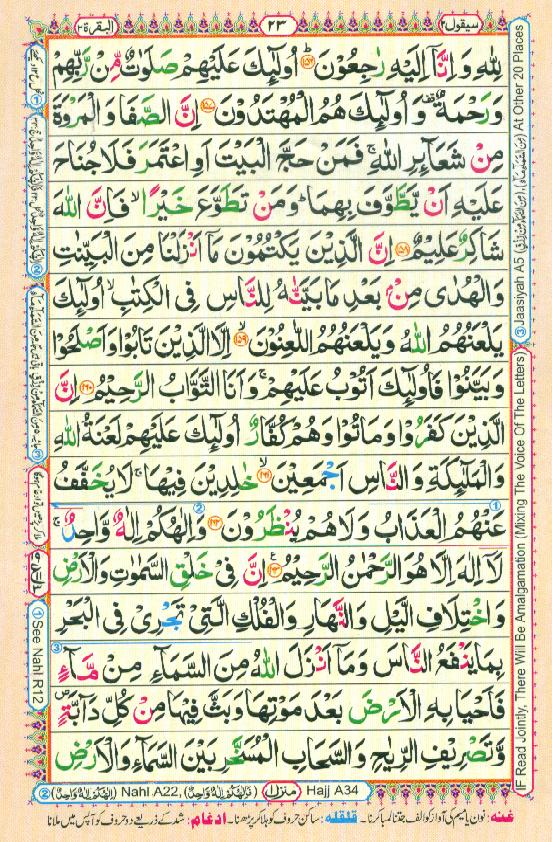 البقرة ٢
٢٣
سيقول ٢
لِلّٰهِ وَ اِنَّاۤ اِلَيْهِ رٰجِعُوْنَ ؕ﴿۱۵۶﴾ اُولٰٓئِكَ عَلَيْهِمْ صَلَوٰتٌ مِّنْ رَّبِّهِمْ
وَرَحْمَةٌ ۟ وَ اُولٰٓئِكَ هُمُ الْمُهْتَدُوْنَ ﴿۱۵۷﴾ اِنَّ الصَّفَا وَ الْمَرْوَةَ
مِنْ شَعَآئِرِ اللّٰهِ ۚ فَمَنْ حَجَّ الْبَيْتَ اَوِ اعْتَمَرَ فَلَا جُنَاحَ
عَلَيْهِ اَنْ يَّطَّوَّفَ بِهِمَا ؕ وَمَنْ تَطَوَّعَ خَيْرًا ۙ فَاِنَّ اللّٰهَ
شَاكِرٌ عَلِيْمٌ ﴿۱۵۸﴾ اِنَّ الَّذِيْنَ يَكْتُمُوْنَ مَاۤ اَنْزَلْنَا مِنَ الْبَيِّنٰتِ
وَالْهُدٰى مِنْۢ بَعْدِ مَا بَيَّنّٰهُ لِلنَّاسِ فِى الْكِتٰبِ ۙ اُولٰٓئِكَ
يَلْعَنُهُمُ اللّٰهُ وَ يَلْعَنُهُمُ اللّٰعِنُوْنَ ۙ﴿۱۵۹﴾ اِلَّا الَّذِيْنَ تَابُوْا وَ اَصْلَحُوْا
وَ بَيَّنُوْا فَاُولٰٓئِكَ اَتُوْبُ عَلَيْهِمْ ۚ وَ اَنَا التَّوَّابُ الرَّحِيْمُ ﴿۱۶۰﴾ اِنَّ
الَّذِيْنَ كَفَرُوْا وَ مَا تُوْا وَ هُمْ كُفَّارٌ اُولٰٓئِكَ عَلَيْهِمْ لَعْنَةُ اللّٰهِ
وَالْمَلٰٓئِكَةِ وَ النَّاسِ اَجْمَعِيْنَ ۙ﴿۱۶۱﴾ خٰلِدِيْنَ فِيْهَا ۚ لَا يُخَفَّفُ
عَنْهُمُ الْعَذَابُ وَ لَا هُمْ يُنْظَرُوْنَ ﴿۱۶۲﴾ وَ اِلٰهُكُمْ اِلٰهٌ وَّاحِدٌ ۚ
لَاۤ اِلٰهَ اِلَّا هُوَ الرَّحْمٰنُ الرَّحِيْمُ ﴿۱۶۳﴾ اِنَّ فِىْ خَلْقِ السَّمٰوٰتِ وَ الْاَرْضِ
وَ اخْتِلَافِ الَّيْلِ وَ النَّهَارِ وَ الْفُلْكِ الَّتِىْ تَجْرِىْ فِى الْبَحْرِ
بِمَا يَنْفَعُ النَّاسَ وَ مَاۤ اَنْزَلَ اللّٰهُ مِنَ السَّمَآءِ مِنْ مَّآءٍ
فَاَحْيَا بِهِ الْاَرْضَ بَعْدَ مَوْتِهَا وَ بَثَّ فِيْهَا مِنْ كُلِّ دَآبَّةٍ ۪
وَّ تَصْرِيْفِ الرِّيٰحِ وَ السَّحَابِ الْمُسَخَّرِ بَيْنَ السَّمَآءِ وَ الْاَرْضِ
① See Nahl R12
IF Read Jointly, There Will Be Amalgamation (Mixing The Voice Of The Letters)
③ Jaasiyah A5 At Other 20 Places
② Nahl A22, Hajj A34
منزل ١
غنه: نون یا میم کی آواز کو الف جتنا لمبا کرنا۔ قلقله: ساکن حروف کو ہلا کر پڑھنا۔ ادغام: شد کے ذریعے دو حروف کو آپس میں ملانا